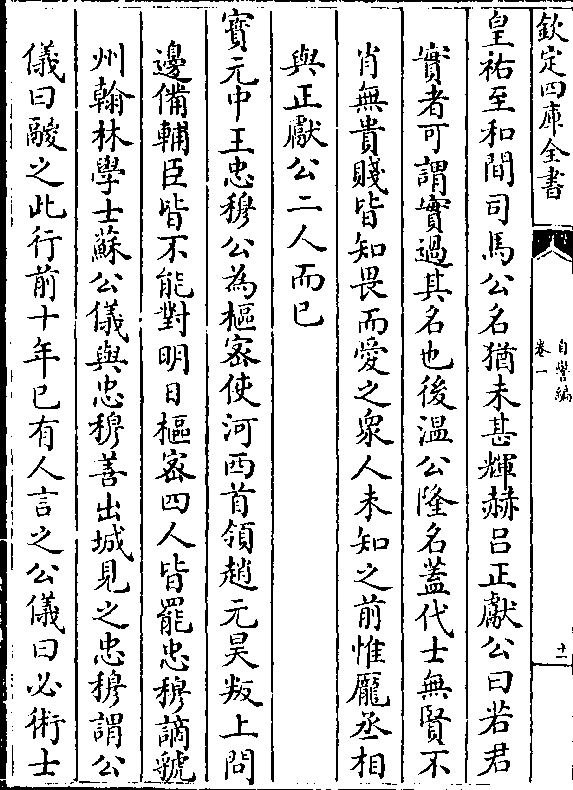 欽定四庫全書
自警編
卷一
十一
皇祐至和間司馬公名猶未甚輝赫吕正獻公曰若君
實者可謂實過其名也後溫公隆名蓋代士無賢不
肖無貴賤皆知畏而愛之衆人未知之前惟龎丞相
與正獻公二人而已
寶元中王忠穆公為樞宻使河西首領趙元昊叛上問
邊備輔臣皆不能對明日樞宻四人皆罷忠穆謫虢
州翰林學士蘇公儀與忠穆善出城見之忠穆謂公
儀曰鬷之此行前十年已有人言之公儀曰必術士